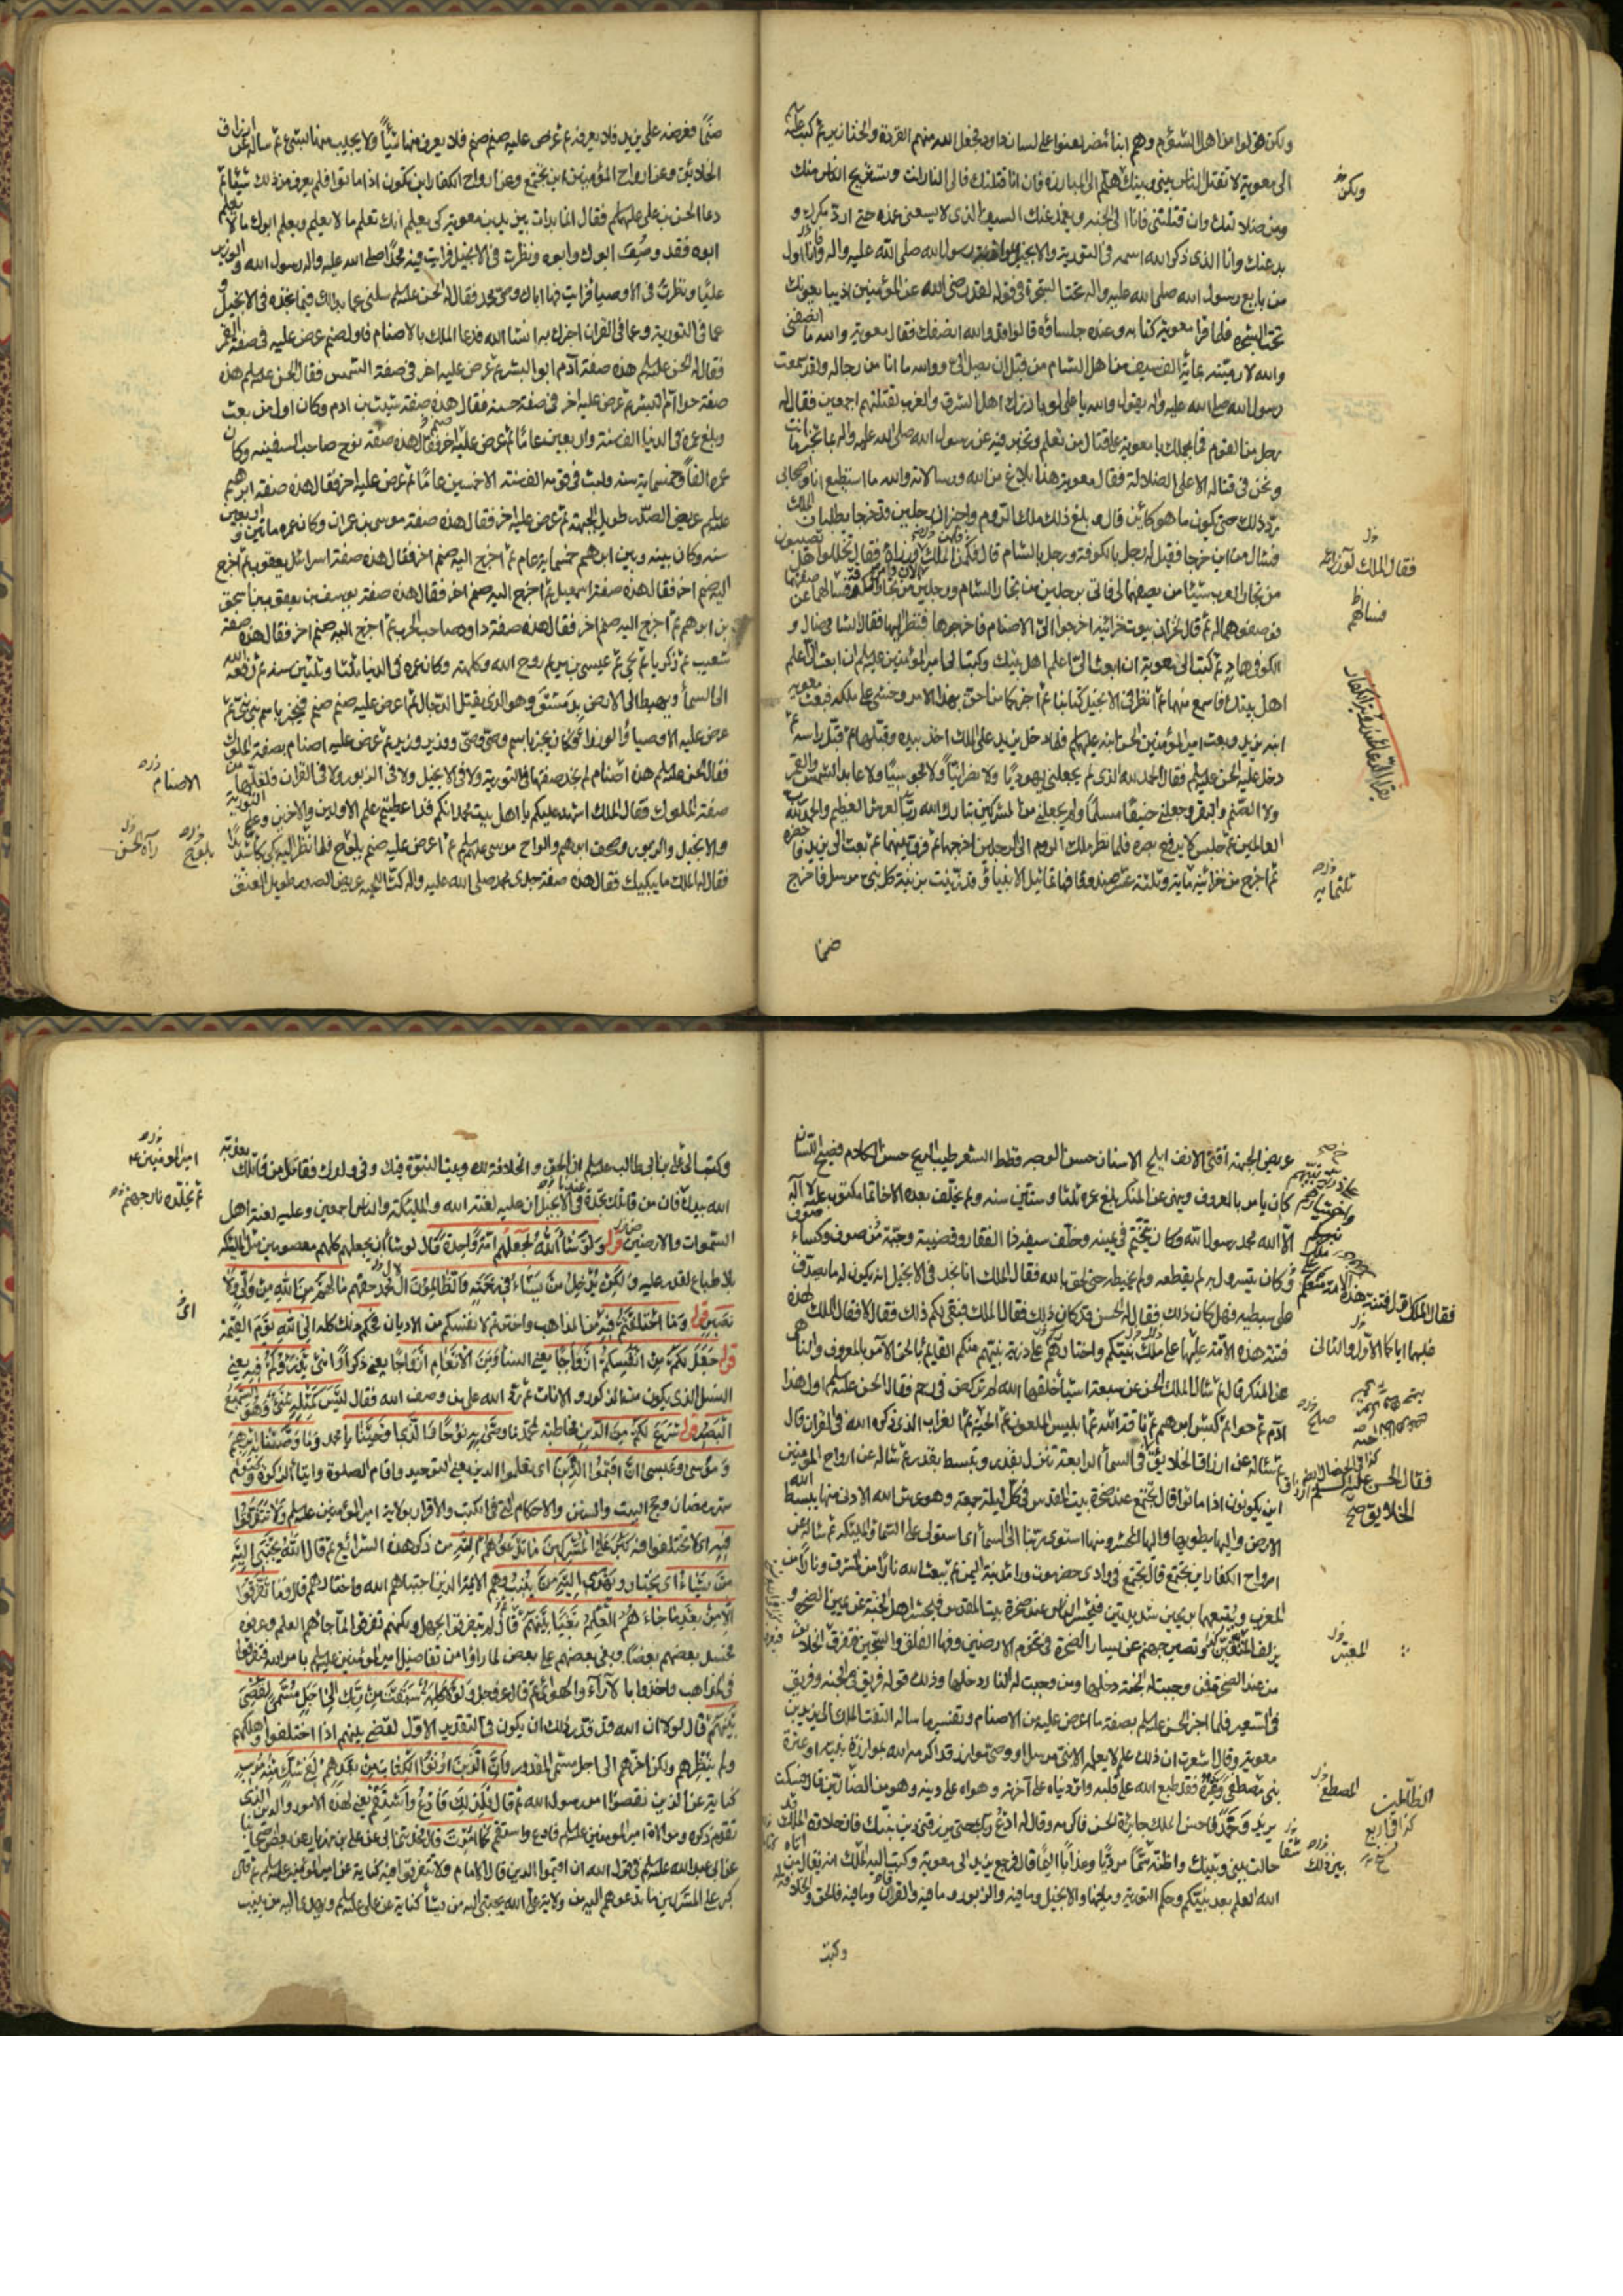 ولكن هؤلاء من اهل الشؤم وهم ابناء مضر لعنوا على لسان داود فجعل الله منهم القردة والخنازير ثم كتب علي عليه السلام
الى معوية لا تقتل الناس بيني وبينك هلم الى المبارزة فان انا قتلتك فالى النار انت وتستريح الناس منك
ومن ضلالتك وان قتلتني فانا الى الجنة ويغمد عنك السيف الذي لا يسعني غمده حتى ارد مكرك و
بدعتك وانا الذي ذكر الله اسمه في التورية والانجيل بموازرة رسول الله صلى الله عليه واله وانا اول
من بايع رسول الله صلى الله عليه واله تحت الشجرة في قوله لقد رضي الله عن المؤمنين اذ يبايعونك
تحت الشجرة فلما قرأ معوية كتابه وعنده جلساؤه قالوا قد والله انصفك فقال معوية والله ما انصفني
والله لارمينه بمائة الف سيف من اهل الشام من قبل ان يصل الي ووالله ما انا من رجاله ولقد سمعت
رسول الله صلى الله عليه واله يقول والله يا علي لو بارزك اهل الشرق والغرب لقتلتهم اجمعين فقال له
رجل من القوم فما يحملك يا معوية على قتال من تعلم وتخبر فيه عن رسول الله صلى الله عليه واله بما تخبر ما انت
ونحن في قتاله الا على الضلالة فقال معوية هذا بلاغ من الله ورسالاته والله ما استطيع انا واصحابي
رد ذلك حتى يكون ما هو كائن قال وبلغ ذلك ملك الروم واخبر ان رجلين قد خرجا يطلبان الملك
فسأل من اين خرجا فقيل له رجل بالكوفة ورجل بالشام قال فقال تخللوا هل تصيبون
من تجار العرب شيئا من يصفهما لي فاتي برجلين من تجار الشام ورجلين من تجار مكة فسألهما عن صفتهما
فوصفوهما له ثم قال لخزان بيوت خزائنه اخرجوا الي الاصنام فاخرجوها فنظر اليها فقال الشامي ضال و
الكوفي هاد ثم كتب الى معوية ان ابعث الي اعلم اهل بيتك وكتب الى امير المؤمنين عليه السلام ان ابعث الي اعلم
اهل بيتك فاسمع منهما ثم انظر في الانجيل كتابنا ثم اخبركما من احق بهذا الامر وخشي على ملكه فبعث معوية
ابنه يزيد وبعث امير المؤمنين الحسن ابنه عليهما السلام فلما دخل يزيد على الملك اخذ بيده وقبلها ثم قبل راسه ثم
دخل عليه الحسن عليه السلام فقال الحمد لله الذي لم يجعلني يهوديا ولا نصرانيا ولا مجوسيا ولا عابد الشمس والقمر
ولا الصنم والبقر وجعلني حنيفا مسلما ولم يجعلني من المشركين تبارك الله رب العرش العظيم والحمد لله رب
العالمين ثم جلس لا يرفع بصره فلما نظر ملك الروم الى الرجلين اخرجهما ثم فرق بينهما ثم بعث الى يزيد فاحضره
ثم اخرج من خزائنه مائة وثلثة عشر صندوقا فيها تماثيل الانبياء وقد زينت بزينة كل نبي مرسل فاخرج
صنما
ولكن
فقال الملك لوزرائه
فسألهم
ثلثمائة
صنما فعرضه على يزيد فلم يعرفه ثم عرض عليه صنم صنم فلا يعرف منها شيئا ولا يجيب منها بشيء ثم سأله عن ارزاق
الخلائق وعن ارواح المؤمنين اين تجتمع وعن ارواح الكفار اين تكون اذا ماتوا فلم يعرف من ذلك شيئا ثم
دعا الحسن بن علي عليهما السلام فقال انما بدأت بيزيد بن معوية كي يعلم انك تعلم ما لا يعلم ويعلم ابوك ما لا يعلم
ابوه فقد وصف ابوك وابوه ونظرت في الانجيل فرايت فيه محمدا صلى الله عليه واله رسول الله والوزير
عليا ونظرت في الاوصياء فرايت فيها اباك وصي محمد فقال له الحسن عليه السلام سلني عما بدا لك فيما تجده في الانجيل و
عما في التورية وعما في القرآن اخبرك به انشاء الله فدعا الملك بالاصنام فاول صنم عرض عليه في صفة القمر
فقال الحسن عليه السلام هذه صفة آدم ابو البشر ثم عرض عليه اخر في صفة الشمس فقال الحسن عليه السلام هذه
صفة حواء ام البشر ثم عرض عليه اخر في صفة حسنة فقال هذه صفة شيث بن ادم وكان اول من بعث
وبلغ عمره في الدنيا الف سنة واربعين عاما ثم عرض عليه صنم اخر فقال هذه صفة نوح صاحب السفينة وكان
عمره الفا وخمسمائة سنة ولبث في قومه الف سنة الا خمسين عاما ثم عرض عليه اخر فقال هذه صفة ابرهيم
عليه السلام عريض الصدر طويل الجبهة ثم عرض عليه اخر فقال هذه صفة موسى بن عمران وكان عمره مأتين واربعين
سنة وكان بينه وبين ابرهيم خمسمائة عام ثم اخرج اليه صنم اخر فقال هذه صفة اسرائيل يعقوب ثم اخرج
اليه صنم اخر فقال هذه صفة اسمعيل ثم اخرج اليه صنم اخر فقال هذه صفة يوسف بن يعقوب بن اسحق
بن ابرهيم ثم اخرج اليه صنم اخر فقال هذه صفة داود صاحب الحرب ثم اخرج اليه صنم اخر فقال هذه صفة
شعيب ثم زكريا ثم يحيى ثم عيسى بن مريم روح الله وكلمته وكان عمره في الدنيا ثلثا وثلثين سنة ثم رفعه الله
الى السماء ويهبط الى الارض بدمشق وهو الذي يقتل الدجال ثم اعرض عليه صنم صنم فيخبر باسم نبي نبي ثم
عرض عليه الاوصياء والوزراء فكان يخبر باسم وصي وصي ووزير وزير ثم عرض عليه اصنام بصفة الملوك
فقال الحسن عليه السلام هذه اصنام لم نجد صفتها في التورية ولا في الانجيل ولا في الزبور ولا في القرآن فلعلها من
صفة الملوك فقال الملك اشهد عليكم يا اهل بيت محمد انكم قد اعطيتم علم الاولين والاخرين وعلم التورية
والانجيل والزبور وصحف ابرهيم والواح موسى عليهما السلام ثم اعرض عليه صنم بلوح فلما نظر اليه بكى بكاء شديدا
فقال له الملك ما يبكيك فقال هذه صفة جدي محمد صلى الله عليه واله كث اللحية عريض الصدر طويل العنق
الاصنام
بلوح
رآه الحسن
عريض الجبهة اقنى الانف ابلج الاسنان حسن الوجه قطط الشعر طيب الريح حسن الكلام فصيح اللسان
كان يامر بالمعروف وينهى عن المنكر بلغ عمره ثلثا وستين سنة ولم يخلف بعده الا خاتما مكتوب عليه لا اله
الا الله محمد رسول الله وكان يتختم في يمينه وخلف سيفه ذا الفقار وقضيبه وجبة من صوف وكساء صوف
وكان يتسرول به لم يقطعه ولم يخيطه حتى لحق بالله فقال الملك انا نجد في الانجيل انه يكون له ما يتصدق
على سبطيه فهل كان ذلك فقال له الحسن قد كان ذلك فقال الملك فبقي لكم ذلك فقال لا فقال الملك لهذه
فتنة هذه الامة عليها على ملك نبيكم واختيارهم على ذرية نبيهم منكم القائم بالحق الآمر بالمعروف والناهي
عن المنكر قال ثم سأل الملك الحسن عن سبعة اشياء خلقها الله لم تركض في رحم فقال الحسن عليه السلام اول هذا
آدم ثم حواء ثم كبش ابرهيم ثم ناقة الله ثم ابليس الملعون ثم الحية ثم الغراب الذي ذكره الله في القرآن قال
ثم سأله عن ارزاق الخلائق في السماء الرابعة تنزل بقدر وتبسط بقدر ثم سأله عن ارواح المؤمنين
اين يكونون اذا ماتوا قال تجتمع عند صخرة بيت المقدس في كل ليلة جمعة وهو عرش الله الادنى منها يبسط الله
الارض واليها يطويها واليها المحشر ومنها استوى ربنا الى السماء اى استولى على السماء والملئكة ثم سأله عن
ارواح الكفار اين تجتمع قال تجتمع في وادي حضرموت وراء مدينة اليمن ثم يبعث الله نارا من المشرق ونارا من
المغرب ويتبعهما بريحين شديدتين فيحشر الناس عند صخرة بيت المقدس فيحشر اهل الجنة عن يمين الصخرة و
يزلف المتقين وتصير جهنم عن يسار الصخرة في تخوم الارضين وفيها الفلق والسجين فتفرق الخلايق
من عند الصخرة فمن وجبت له الجنة دخلها ومن وجبت له النار دخلها وذلك قوله فريق في الجنة وفريق
في السعير فلما اخبر الحسن عليه السلام بصفة ما اعرض عليه من الاصنام وتفسير ما سأله التفت الملك الى يزيد بن
معوية وقال شعرت ان ذلك علم لا يعلمه الا نبي مرسل او وصي موازر قد اكرمه الله بموازرة نبيه او عترة
نبي مصطفى وغيره فقد طبع الله على قلبه واثر دنياه على آخرته وهواه على دينه وهو من الظالمين قال فسكت
يزيد وخمد فاحسن الملك جايزة الحسن فاكرمه وقال له ادع ربك حتى يرزقني دين نبيك فان حلاوة الملك قد
حالت بيني وبينك واظنه شقاء مرديا وعذابا اليما قال فرجع يزيد الى معوية وكتب اليه الملك انه يقال من اتاه
الله العلم بعد نبيكم وحكم التورية وما فيها والانجيل وما فيه والزبور وما فيه والقرآن وما فيه فالحق والخلافة له
وكتب
فقال الملك اول فتنة هذه الامة
صالح
فقال الحسن عليه السلام ارزاق
الخلايق صح
المعتبر
المصطفى
الظالمين
بين ذلك
شقا
وكتب الى علي بن ابي طالب عليه السلام ان الحق والخلافة لك وبيت النبوة فيك وفي ولدك فقاتل من قاتلك يعذبه
الله بيدك فان من قاتلك نجده في الانجيل ان عليه لعنة الله والملئكة والناس اجمعين وعليه لعنة اهل
السموات والارضين قوله ولو شاء الله لجعلهم امة واحدة قال لو شاء ان يجعلهم كلهم معصومين مثل الملئكة
بلا طباع لقدر عليه ولكن يدخل من يشاء في رحمته والظالمون لال محمد حقهم ما لهم من الله من ولي ولا
نصير قوله وما اختلفتم فيه من المذاهب واخترتم لانفسكم من الاديان فحكم ذلك كله الى الله يوم القيمة
قوله جعل لكم من انفسكم ازواجا يعني النساء ومن الانعام ازواجا يعني ذكرا وانثى يذرؤكم فيه يعني
النسل الذي يكون من الذكور والاناث ثم رد الله على من وصف الله فقال ليس كمثله شيء وهو السميع
البصير قوله شرع لكم من الدين مخاطبة لمحمد ما وصى به نوحا والذي اوحينا اليك يا محمد وما وصينا به ابرهيم
وموسى وعيسى ان اقيموا الدين اى تعلموا الدين يعني التوحيد واقام الصلوة وايتاء الزكوة وصوم
شهر رمضان وحج البيت والسنن والاحكام التي في الكتب والاقرار بولاية امير المؤمنين عليه السلام ولا تتفرقوا
فيه اى لا تختلفوا فيه كبر على المشركين ما تدعوهم اليه من ذكر هذه الشرائع ثم قال الله يجتبي اليه
من يشاء اى يختار ويهدي اليه من ينيب وهم الائمة الذين اجتباهم الله واختارهم قال وما تفرقوا
الا من بعد ما جاءهم العلم بغيا بينهم قال لم يتفرقوا بجهل ولكنهم تفرقوا لما جاءهم العلم وعرفوه
فحسد بعضهم بعضا وبغى بعضهم على بعض لما راوا من تفاضل امير المؤمنين عليه السلام بامر الله فتفرقوا
في المذاهب واخذوا بالآراء والاهواء ثم قال عز وجل ولولا كلمة سبقت من ربك الى اجل مسمى لقضي
بينهم قال لولا ان الله قد قدر ذلك ان يكون في التقدير الاول لقضي بينهم اذا اختلفوا واهلكهم
ولم ينظرهم ولكن اخرهم الى اجل مسمى المقدور وان الذين اورثوا الكتاب من بعدهم لفي شك منه مريب
كناية عن الذين نقضوا امر رسول الله ثم قال فلذلك فادع واستقم يعني لهذه الامور والدين الذي
تقدم ذكره وموالاة امير المؤمنين عليه السلام فادع واستقم كما امرت قال فحدثني ابي عن علي بن مهزيار عن بعض اصحابنا
عن ابي عبد الله عليه السلام في قول الله ان اقيموا الدين قال الامام ولا تتفرقوا فيه كناية عن امير المؤمنين عليه السلام ثم قال
كبر على المشركين ما تدعوهم اليه من ولاية علي الله يجتبي اليه من يشاء كناية عن علي عليه السلام ويهدي اليه من ينيب
امير المؤمنين ع
ثم يخلده نار جهنم
اى